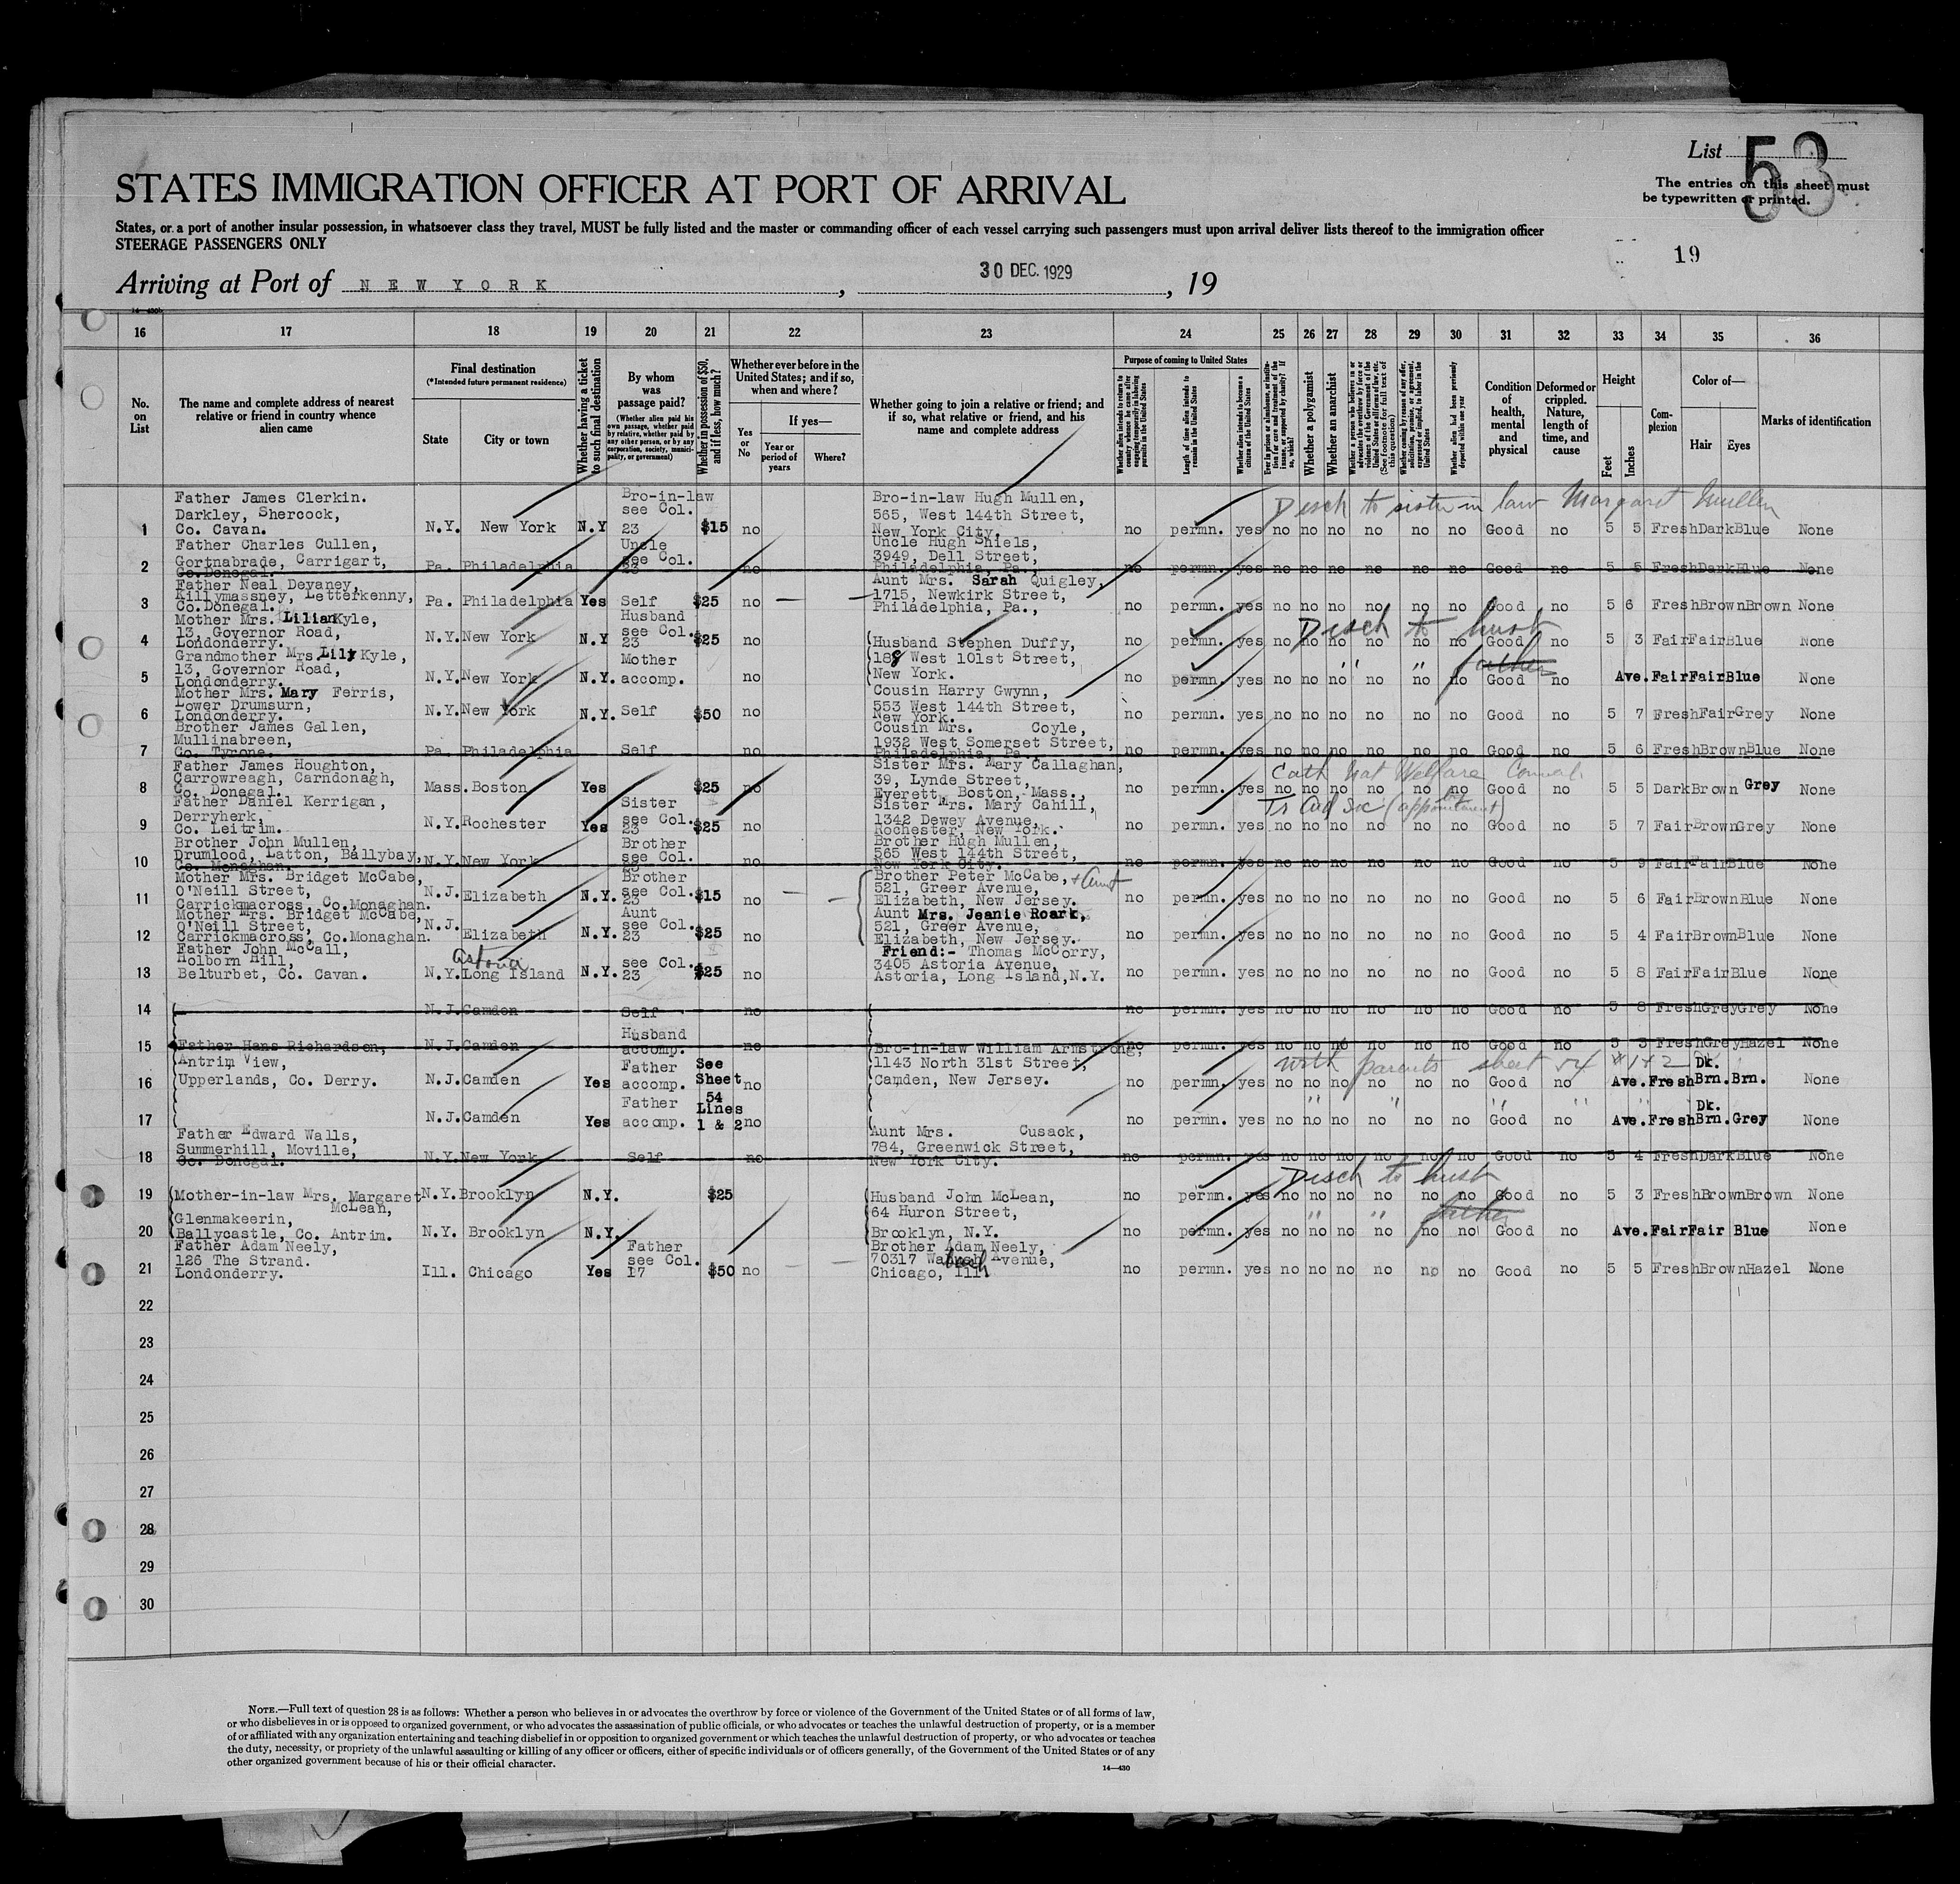 List 53
The entries on this sheet must
be typewritten or printed.
STATES IMMIGRATION OFFICER AT PORT OF ARRIVAL
States, or a port of another insular possession, in whatsoever class they travel, MUST be fully listed and the master or commanding officer of each vessel carrying such passengers must upon arrival deliver lists thereof to the immigration officer
STEERAGE PASSENGERS ONLY
19
Arriving at Port of NEW YORK, 30 DEC. 1929, 19
16 17 18 19 20 21 22 23 24 25 26 27 28 29 30 31 32 33 34 35 36
No. on List
The name and complete address of nearest relative or friend in country whence alien came
Final destination
(*Intended future permanent residence)
State
City or town
Whether having a ticket to such final destination
By whom was passage paid?
(Whether alien paid his own passage, whether paid by relative, whether paid by any other person, or by any corporation, society, municipality, or government)
Whether in possession of $50, and if less, how much?
Whether ever before in the United States; and if so, when and where?
Yes or No
If yes—
Year or period of years
Where?
Whether going to join a relative or friend; and if so, what relative or friend, and his name and complete address
Purpose of coming to United States
Length of time alien intends to remain in the United States
Whether alien intends to become a citizen of the United States
Whether a polygamist
Whether an anarchist
Condition of health, mental and physical
Deformed or crippled. Nature, length of time, and cause
Height
Feet
Inches
Complexion
Color of—
Hair
Eyes
Marks of identification
Disch to sister in law Margaret Mullen
1 Father James Clerkin. Darkley, Shercock, Co. Cavan. N.Y. New York N.Y Bro-in-law see Col. 23 $15 no Bro-in-law Hugh Mullen, 565, West 144th Street, New York City. no permn. yes no no no no no no Good no 5 5 Fresh Dark Blue None
2 Father Charles Cullen, Gortnabrade, Carrigart, Co. Donegal. Pa. Philadelphia Uncle see Col. 23 no Uncle Hugh Shiels, 3949, Dell Street, Philadelphia, Pa., no permn. yes no no no no no no Good no 5 5 Fresh Dark Blue None
3 Father Neal Devaney, Killymassney, Letterkenny, Co. Donegal. Pa. Philadelphia Yes Self $25 no — Aunt Mrs. Sarah Quigley, 1715, Newkirk Street, Philadelphia, Pa., no permn. yes no no no no no no Good no 5 6 Fresh Brown Brown None
Disch to husb
4 Mother Mrs. Lilian Kyle, 13, Governor Road, Londonderry. N.Y. New York N.Y Husband see Col. 23 $25 no Husband Stephen Duffy, 188 West 101st Street, New York. no permn. yes no no no no no no Good no 5 3 Fair Fair Blue None
" " father
5 Grandmother Mrs. Lily Kyle, 13, Governor Road, Londonderry. N.Y. New York N.Y. Mother accomp. no no permn. yes no no no no no no Good no Ave. Fair Fair Blue None
6 Mother Mrs. Mary Ferris, Lower Drumsurn, Londonderry. N.Y. New York N.Y. Self $50 no Cousin Harry Gwynn, 553 West 144th Street, New York. no permn. yes no no no no no no Good no 5 7 Fresh Fair Grey None
7 Brother James Gallen, Mullinabreen, Co. Tyrone. Pa. Philadelphia Self no Cousin Mrs. Coyle, 1932 West Somerset Street, Philadelphia, Pa. no permn. yes no no no no no no Good no 5 6 Fresh Brown Blue None
Cath Nat Welfare Council
8 Father James Houghton, Carrowreagh, Carndonagh, Co. Donegal. Mass. Boston Yes $25 no Sister Mrs. Mary Callaghan, 39, Lynde Street, Everett, Boston, Mass., no permn. yes no no no no no no Good no 5 5 Dark Brown Grey None
Tr Aid Soc (by appointment)
9 Father Daniel Kerrigan, Derryherk, Co. Leitrim. N.Y. Rochester Yes Sister see Col. 23 $25 no Sister Mrs. Mary Cahill, 1342 Dewey Avenue, Rochester, New York. no permn. yes no no no no no no Good no 5 7 Fair Brown Grey None
10 Brother John Mullen, Drumlood, Latton, Ballybay, Co. Monaghan. N.Y. New York Brother see Col. 23 no Brother Hugh Mullen, 565 West 144th Street, New York City. no permn. yes no no no no no no Good no 5 9 Fair Fair Blue None
11 Mother Mrs. Bridget McCabe, O'Neill Street, Carrickmacross, Co. Monaghan. N.J. Elizabeth N.Y. Brother see Col. 23 $15 no — Brother Peter McCabe, + Aunt 521, Greer Avenue, Elizabeth, New Jersey. no permn. yes no no no no no no Good no 5 6 Fair Brown Blue None
12 Mother Mrs. Bridget McCabe, O'Neill Street, Carrickmacross, Co. Monaghan. N.J. Elizabeth N.Y. Aunt see Col. 23 $25 no Aunt Mrs. Jeanie Roark, 521, Greer Avenue, Elizabeth, New Jersey. no permn. yes no no no no no no Good no 5 4 Fair Brown Blue None
13 Father John McCall, Holborn Hill, Belturbet, Co. Cavan. N.Y. Astoria Long Island N.Y. see Col. 23 $25 no Friend:- Thomas McCorry, 3405 Astoria Avenue, Astoria, Long Island, N.Y. no permn. yes no no no no no no Good no 5 8 Fair Fair Blue None
14 N.J. Camden Self no no permn. yes no no no no no no Good no 5 8 Fresh Grey Grey None
15 Father Hans Richardson, N.J. Camden Husband accomp. no Bro-in-law William Armstrong, no permn. yes no no no no no no Good no 5 3 Fresh Grey Hazel None
with parents sheet 54 #1+2
16 Antrim View, Upperlands, Co. Derry. N.J. Camden Yes Father accomp. See Sheet 54 Lines 1 & 2 no 1143 North 31st Street, Camden, New Jersey. no permn. yes no no no no no no Good no Ave. Fresh Dk. Brn. Brn. None
17 N.J. Camden Yes Father accomp. no no permn. yes no no no no no no Good no Ave. Fresh Dk. Brn. Grey None
18 Father Edward Walls, Summerhill, Moville, Co. Donegal. N.Y. New York Self no Aunt Mrs. Cusack, 784, Greenwick Street, New York City. no permn. yes no no no no no no Good no 5 4 Fresh Dark Blue None
Disch to husb
19 Mother-in-law Mrs. Margaret McLean, N.Y. Brooklyn N.Y. $25 Husband John McLean, 64 Huron Street, no permn. yes no no no no no no Good no 5 3 Fresh Brown Brown None
" " father
20 Glenmakeerin, Ballycastle, Co. Antrim. N.Y. Brooklyn N.Y. Brooklyn, N.Y. no permn. yes no no no no no no Good no Ave. Fair Fair Blue None
21 Father Adam Neely, 126 The Strand. Londonderry. Ill. Chicago Yes Father see Col. 17 $50 no — — Brother Adam Neely, 70317 Avenue, Chicago, Ill. no permn. yes no no no no no no Good no 5 5 Fresh Brown Hazel None
22
23
24
25
26
27
28
29
30
NOTE.—Full text of question 28 is as follows: Whether a person who believes in or advocates the overthrow by force or violence of the Government of the United States or of all forms of law,
or who disbelieves in or is opposed to organized government, or who advocates the assassination of public officials, or who advocates or teaches the unlawful destruction of property, or is a member
of or affiliated with any organization entertaining and teaching disbelief in or opposition to organized government or which teaches the unlawful destruction of property, or who advocates or teaches
the duty, necessity, or propriety of the unlawful assaulting or killing of any officer or officers, either of specific individuals or of officers generally, of the Government of the United States or of any
other organized government because of his or their official character.
14—430